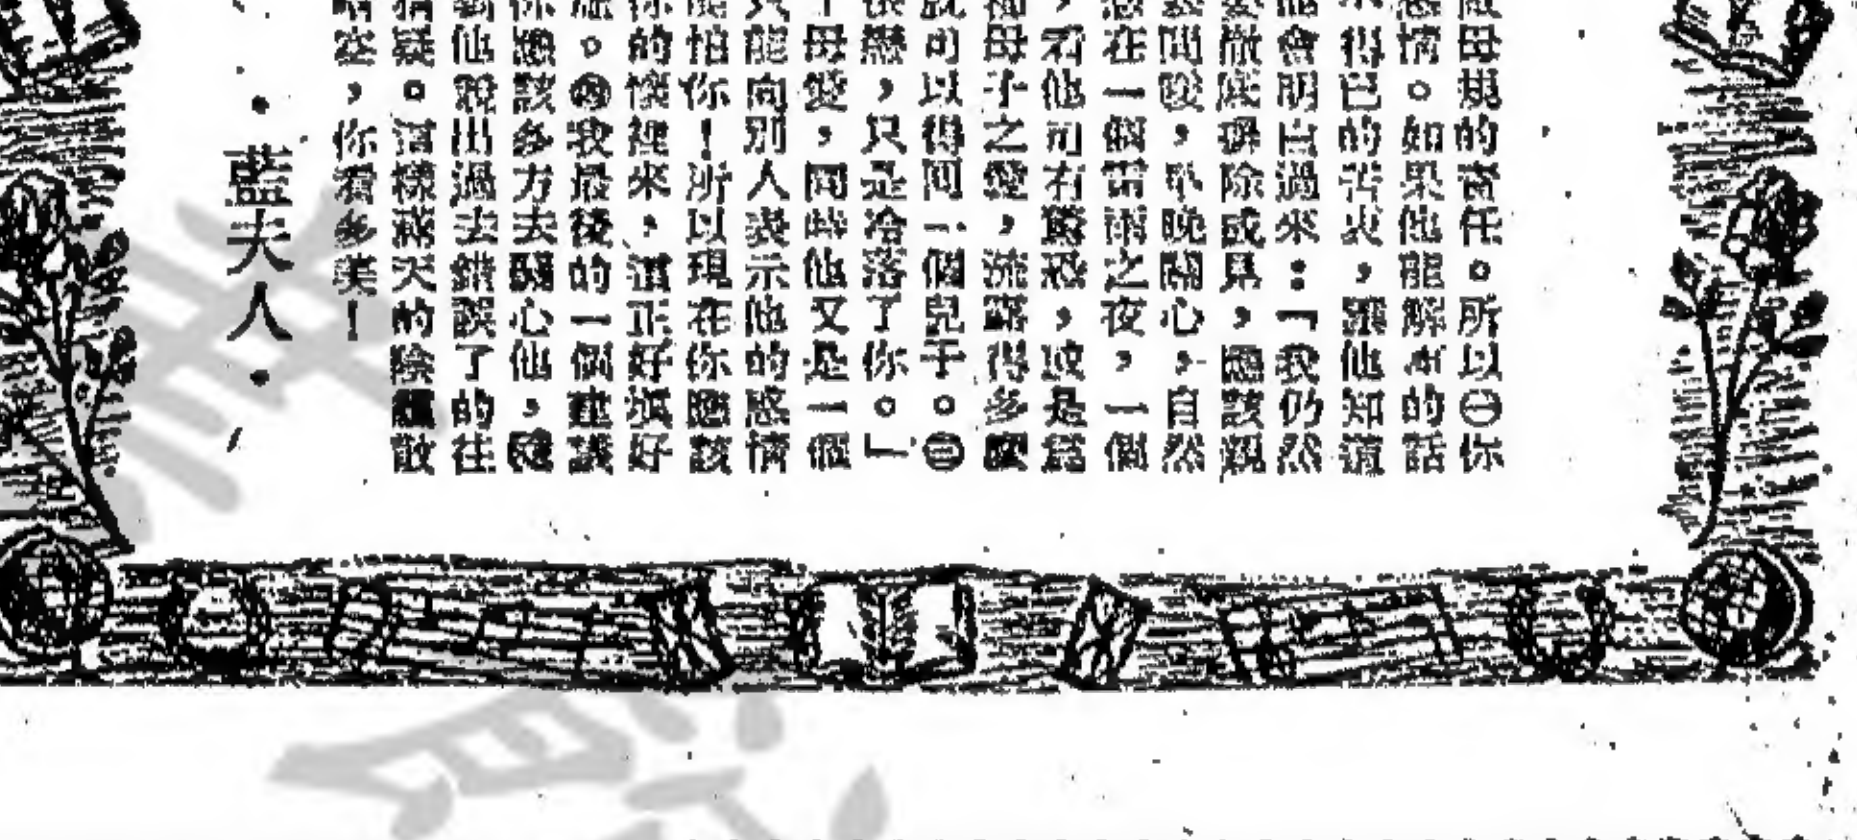 做母親的責任。所以㊀你
感情。如果他能解你的話
不得已的苦衷，讓他知道
他會明白過來：「我仍然
要徹底摒除成見，應該親
裳問暖，早晚關心，自然
在一個雷雨之夜，一個
，看他可有驚恐，或是爲
補母子之愛，流露得多麼
就可以得回一個兒子。㊂
懸，只是冷落了你。」
母愛，同時他又是一個
只能向別人表示他的感情
能怕你！所以現在你應該
你的懷裡來，這正好塡好
旅。㊃我最後的一個建議
你應該多方去關心他，
他說出過去錯誤了的往
猜疑。這樣滿天的陰霾散
晴空，你看多美！
・藍夫人・